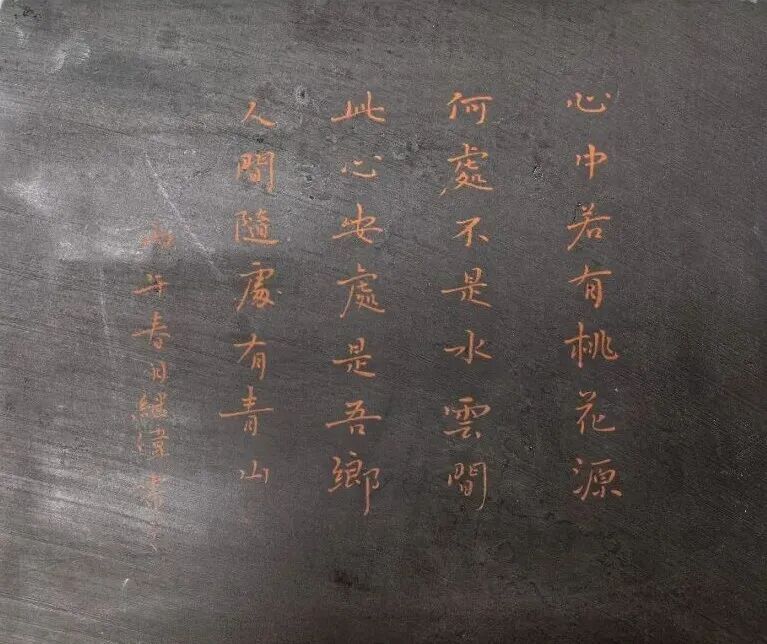 心中若有桃花源
何處不是水雲間
此心安處是吾鄉
人間隨處有青山
丙午春日繼偉書